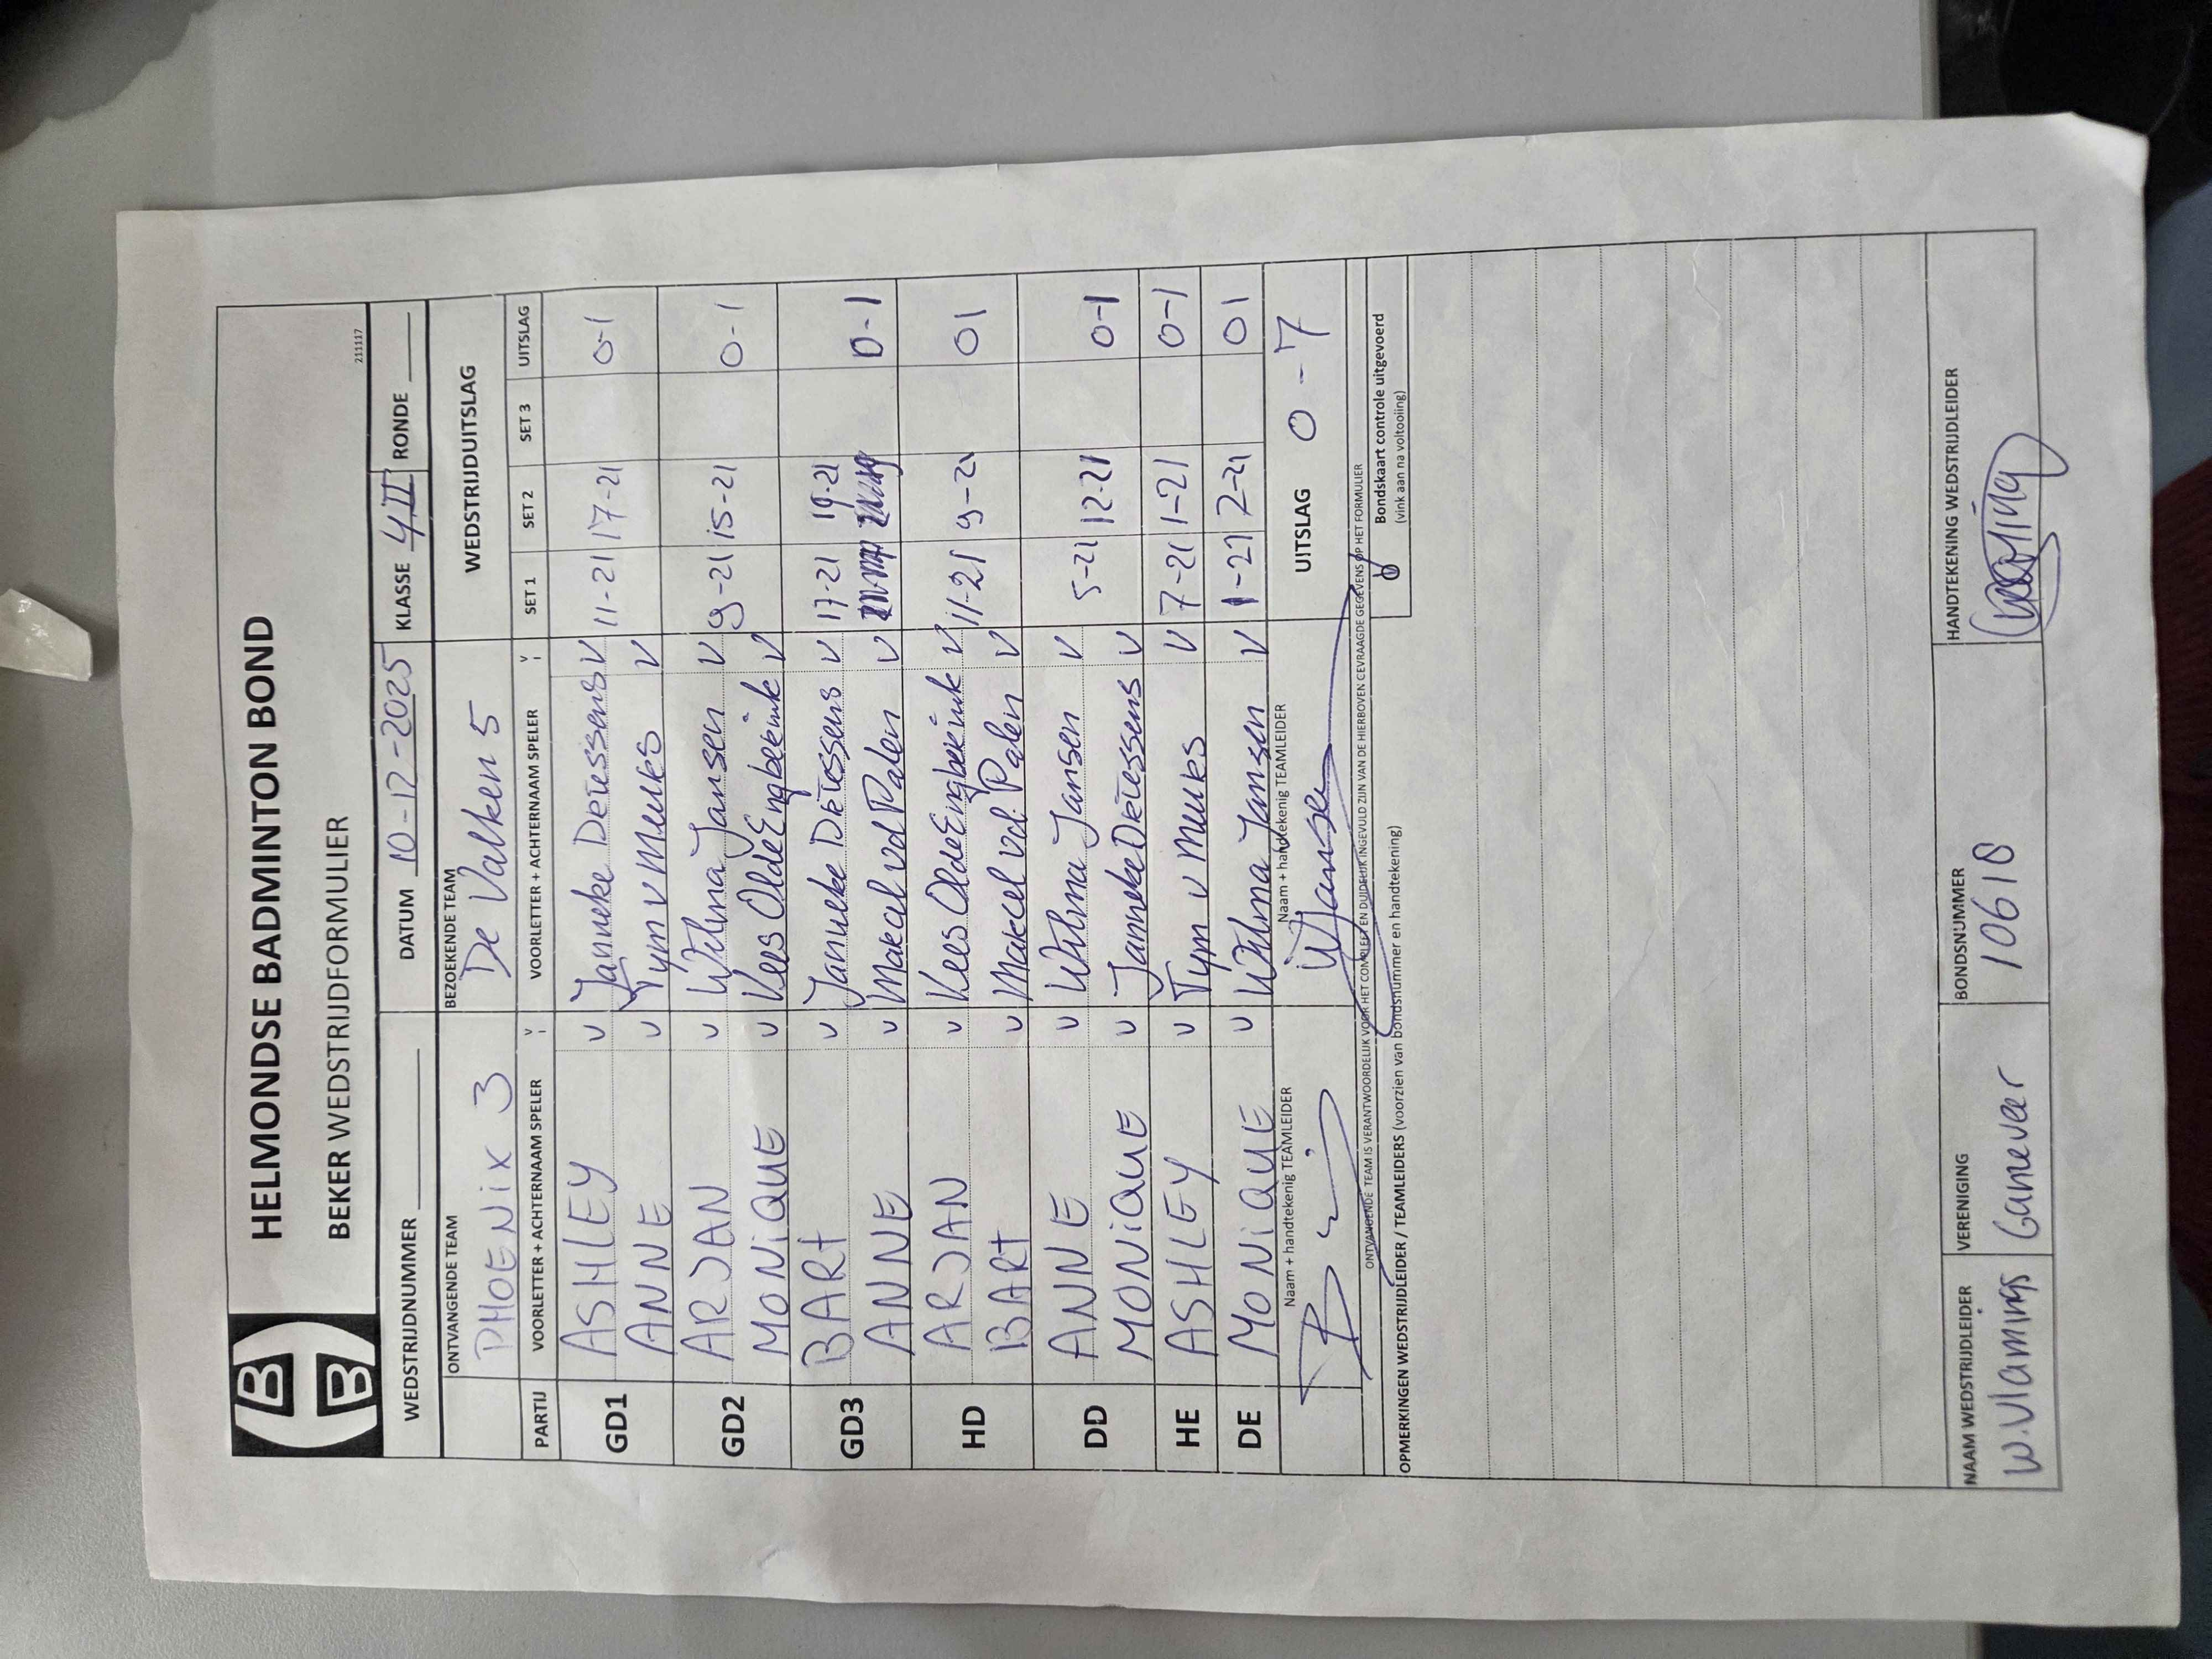 HELMONDSE BADMINTON BOND
BEKER WEDSTRIJDFORMULIER
211117
WEDSTRIJDNUMMER DATUM 10-12-2025 KLASSE 4III RONDE
ONTVANGENDE TEAM BEZOEKENDE TEAM
PHOENiX 3 De Valken 5 WEDSTRIJDUITSLAG
PARTIJ VOORLETTER + ACHTERNAAM SPELER V VOORLETTER + ACHTERNAAM SPELER V SET 1 SET 2 SET 3 UITSLAG
GD1 ASHLEY v Janneke Driessens v 11-21 17-21 0-1
ANNE v Tym v Meurs v
GD2 ARJAN v Wilma Jansen v 9-21 15-21 0-1
MONiQUE v Kees Olde Engberink v
GD3 BARt v Janneke Driessens v 17-21 19-21 0-1
ANNE v Marcel vd Palen v
HD ARJAN v Kees Olde Engberink v 11-21 9-21 01
BARt v Marcel vd. Palen v
DD ANNE v Wilma Jansen v 5-21 12-21 0-1
MONiQUE v Janneke Driessens v
HE ASHLEY v Tym v Meurs v 7-21 1-21 0-1
DE MONiQUE v Wilma Jansen v 1-21 2-21 01
Naam + handtekenig TEAMLEIDER Naam + handtekenig TEAMLEIDER
WJansen UITSLAG 0-7
ONTVANGENDE TEAM IS VERANTWOORDELIJK VOOR HET COMPLEET EN DUIDELIJK INGEVULD ZIJN VAN DE HIERBOVEN GEVRAAGDE GEGEVENS OP HET FORMULIER
Bondskaart controle uitgevoerd
(vink aan na voltooiing)
OPMERKINGEN WEDSTRIJDLEIDER / TEAMLEIDERS (voorzien van bondsnummer en handtekening)
NAAM WEDSTRIJDLEIDER VERENIGING BONDSNUMMER HANDTEKENING WEDSTRIJDLEIDER
W.Vlamings Ganever 10618